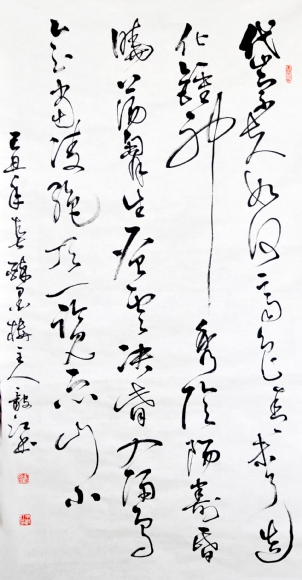 岱宗夫如何齊魯青未了造
化鍾神秀陰陽割昏
曉蕩胸生层雲決眥入歸鳥
會當凌絶頂一覽众山小
己丑年春醉墨樓主人毅江書